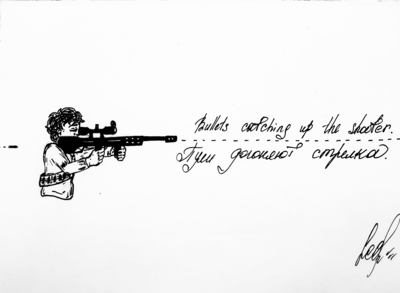 Bullets catching up the shooter.
Пули догоняют стрелка.